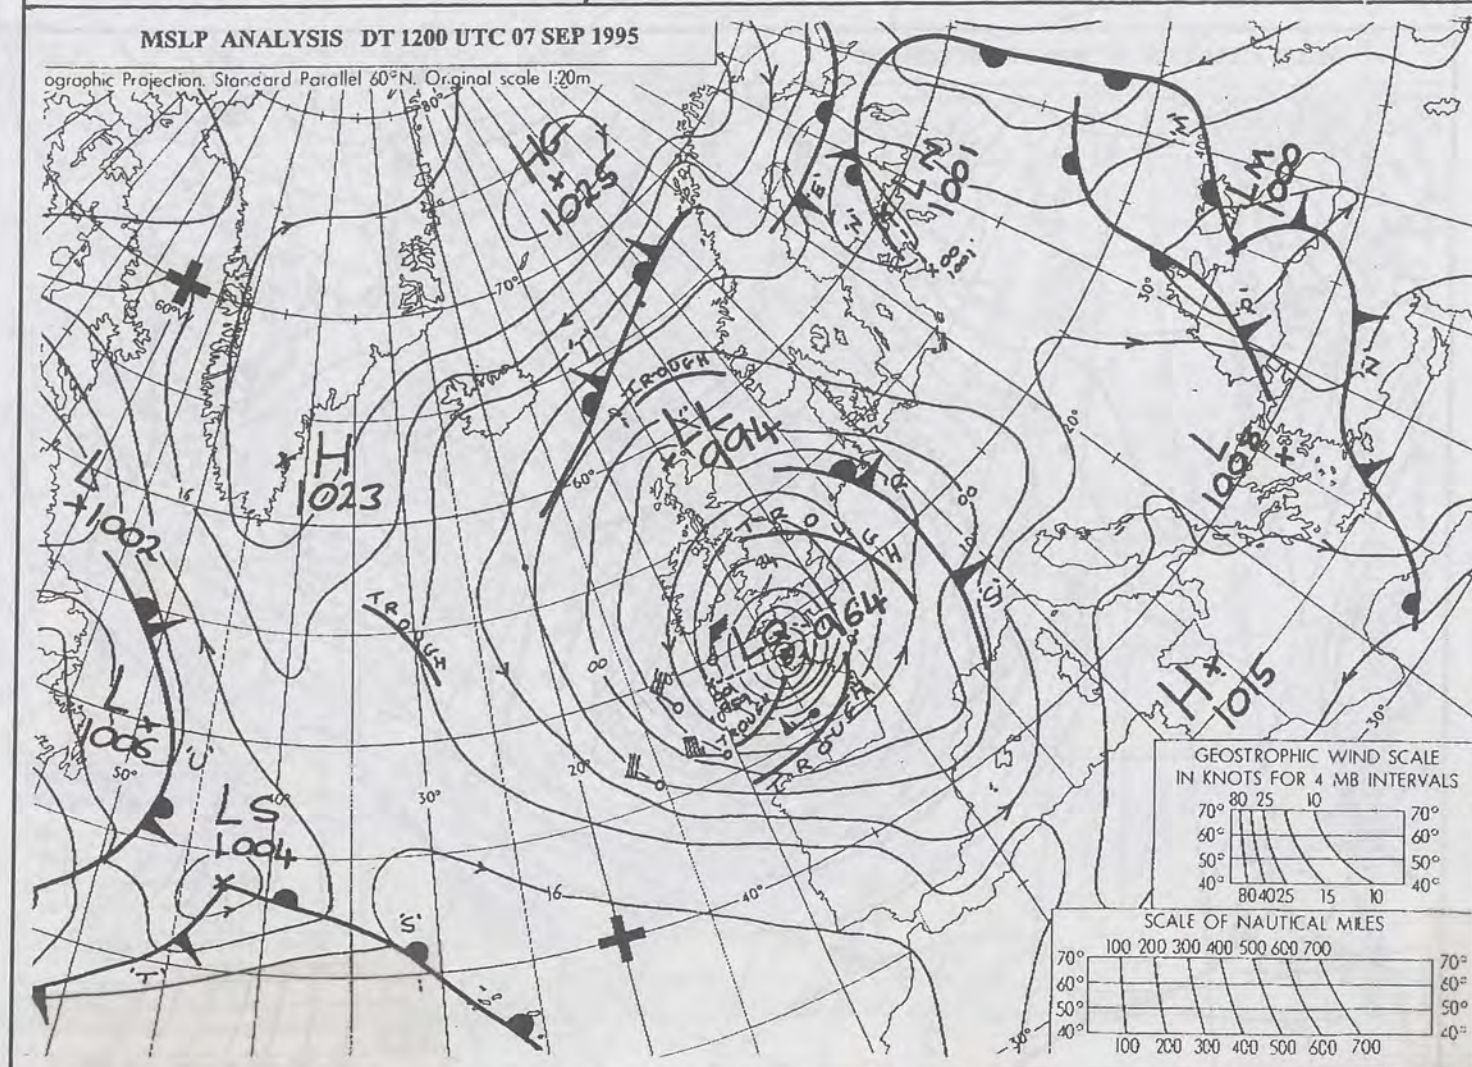 MSLP ANALYSIS DT 1200 UTC 07 SEP 1995
ographic Projection. Standard Parallel 60°N. Original scale 1:20m
80°
HG
1025
'E'
LN
1001
'N'
1001
'M'
40°
LM
1000
60°W
70°
'L'
TROUGH
30°
'R'
'N'
LK
994
H
1023
L
1002
16
60°
20°
L
1008
'R'
00
TROUGH
10°
'S'
LQ 964
TROUGH
00
L
1006
'U'
50°
TROUGH
TROUGH
H
1015
30°
20°
30°
40°
LS
1004
16
40°
'S'
'T'
30°
GEOSTROPHIC WIND SCALE
IN KNOTS FOR 4 MB INTERVALS
80 25 10
70° 70°
60° 60°
50° 50°
40° 40°
80 40 25 15 10
SCALE OF NAUTICAL MILES
100 200 300 400 500 600 700
70° 70°
60° 60°
50° 50°
40° 40°
100 200 300 400 500 600 700